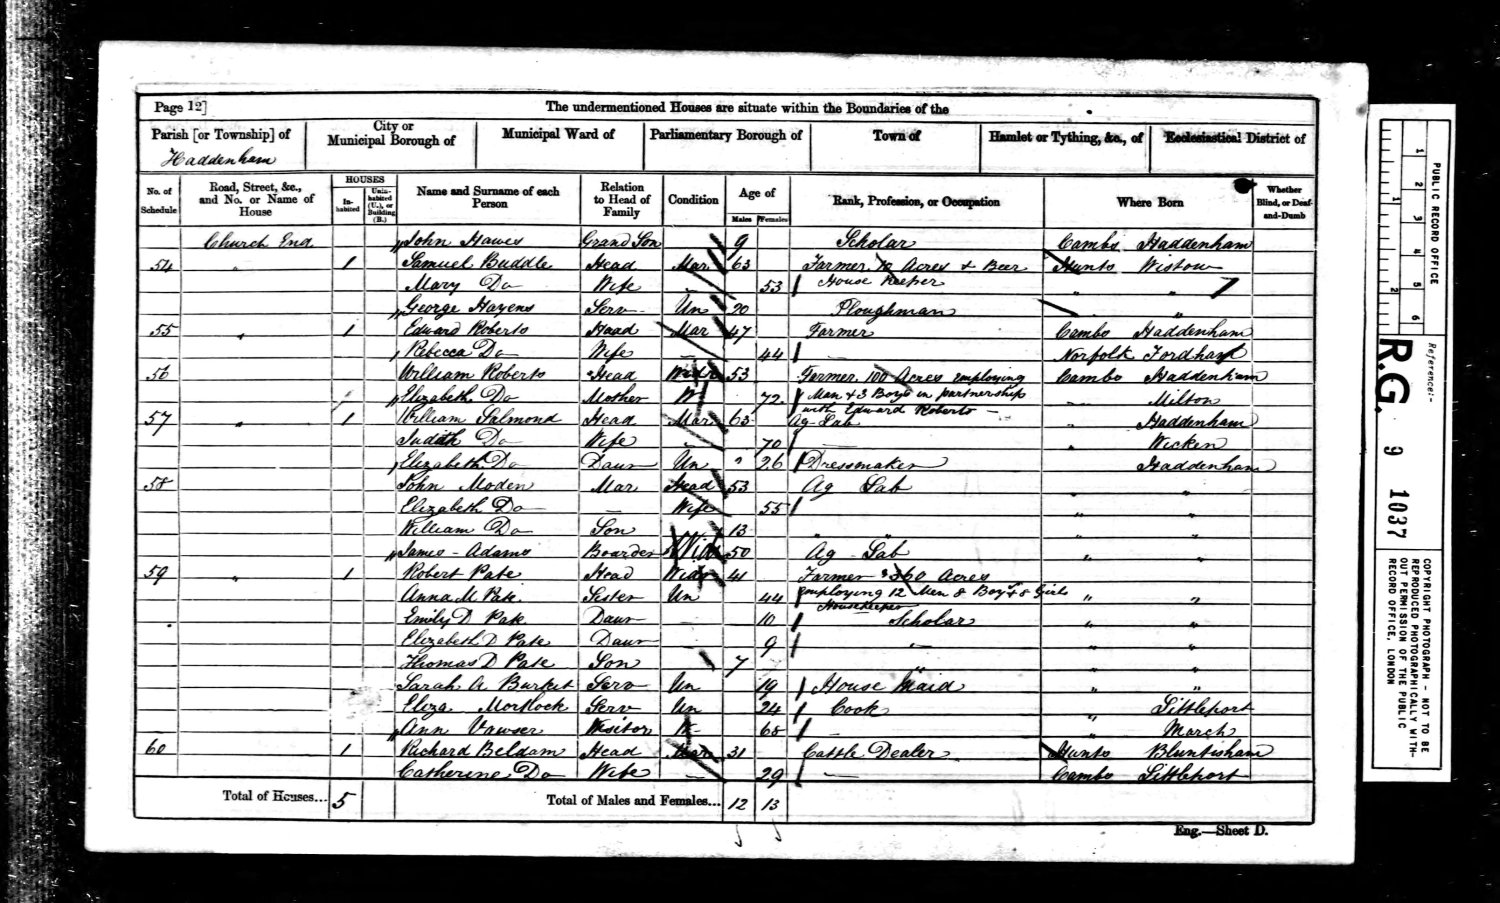 Page 12]
The undermentioned Houses are situate within the Boundaries of the
Parish [or Township] of
Haddenham
City or Municipal Borough of
Municipal Ward of
Parliamentary Borough of
Town of
Hamlet or Tything, &c., of
Ecclesiastical District of
No. of Schedule
Road, Street, &c., and No. or Name of House
HOUSES
In-habited
Unin-habited (U.), or Building (B.)
Name and Surname of each Person
Relation to Head of Family
Condition
Age of
Males Females
Rank, Profession, or Occupation
Where Born
Whether Blind, or Deaf-and-Dumb
Church End John Hawes Grand Son 9 Scholar Cambs Haddenham
54 " 1 Samuel Buddle Head Mar 63 Farmer 10 Acres & Beer Hunts Wistow
Mary Do Wife — 53 House Keeper " "
George Hayens Serv Un 20 Ploughman "
55 " 1 Edward Roberts Head Mar 47 Farmer Cambs Haddenham
Rebecca Do Wife — 44 — Norfolk Fordham
56 William Roberts Head Widr 53 Farmer 100 Acres employing Cambs Haddenham
Elizabeth Do Mother W 72 Men & 3 Boys in partnership Milton
with Edward Roberts —
57 " 1 William Salmond Head Mar 63 Ag Lab " Haddenham
Judith Do Wife 70 — " Wicken
Elizabeth Do Daur Un " 26 Dressmaker Haddenham
58 John Moden Mar Head 53 Ag Lab " "
Elizabeth Do — Wife 55 " "
William Do Son 13 " " " "
James Adams Boarder Wid 50 Ag Lab " "
59 " 1 Robert Pate Head Widr 41 Farmer 360 Acres
Anna M Pate Sister Un 44 employing 12 Men 8 Boys & 8 Girls " "
Housekeeper
Emily D Pate Daur — 10 Scholar " "
Elizabeth D Pate Daur 9 — " "
Thomas D Pate Son 7 " " "
Sarah A Burket Serv Un 19 House Maid " "
Eliza Morllock Serv Un 24 Cook " Littleport
Ann Vawser Visitor W 68 — " March
60 1 Richard Beldam Head Mar 31 Cattle Dealer Hunts Bluntisham
Catherine Do Wife — 29 — Cambs Littleport
Total of Houses... 5 Total of Males and Females... 12 13
Eng.—Sheet D.
PUBLIC RECORD OFFICE
1 2 3 4 5 6
1 2
Reference:-
R.G. 9 1037
COPYRIGHT PHOTOGRAPH - NOT TO BE REPRODUCED PHOTOGRAPHICALLY WITH-OUT PERMISSION OF THE PUBLIC RECORD OFFICE, LONDON